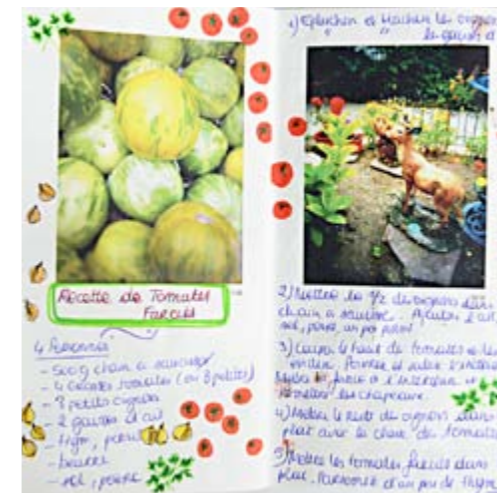 Recette de Tomates
Farcies
4 Personnes
- 500 g chair à saucisse
- 4 grosses tomates (ou 8 petites)
- 3 petits oignons
- 2 gousses d'ail
- Thym, persil
- beurre
- sel, poivre
1) Eplucher et Hacher les
2) Mettre les 1/2 des oignons dans
chair à saucisse. Ajouter l'ail,
sel, poivre, un peu persil
3) Couper le haut de tomates et les
vider. Poivrer et saler l'intérieur
farce à l'intérieur et
Remettre les chapeaux.
4) Mettre le reste de oignon dans
plat avec la chair de tomates
5) Mettre les tomates farcies dans
plat. Parsemer d'un peu de thym